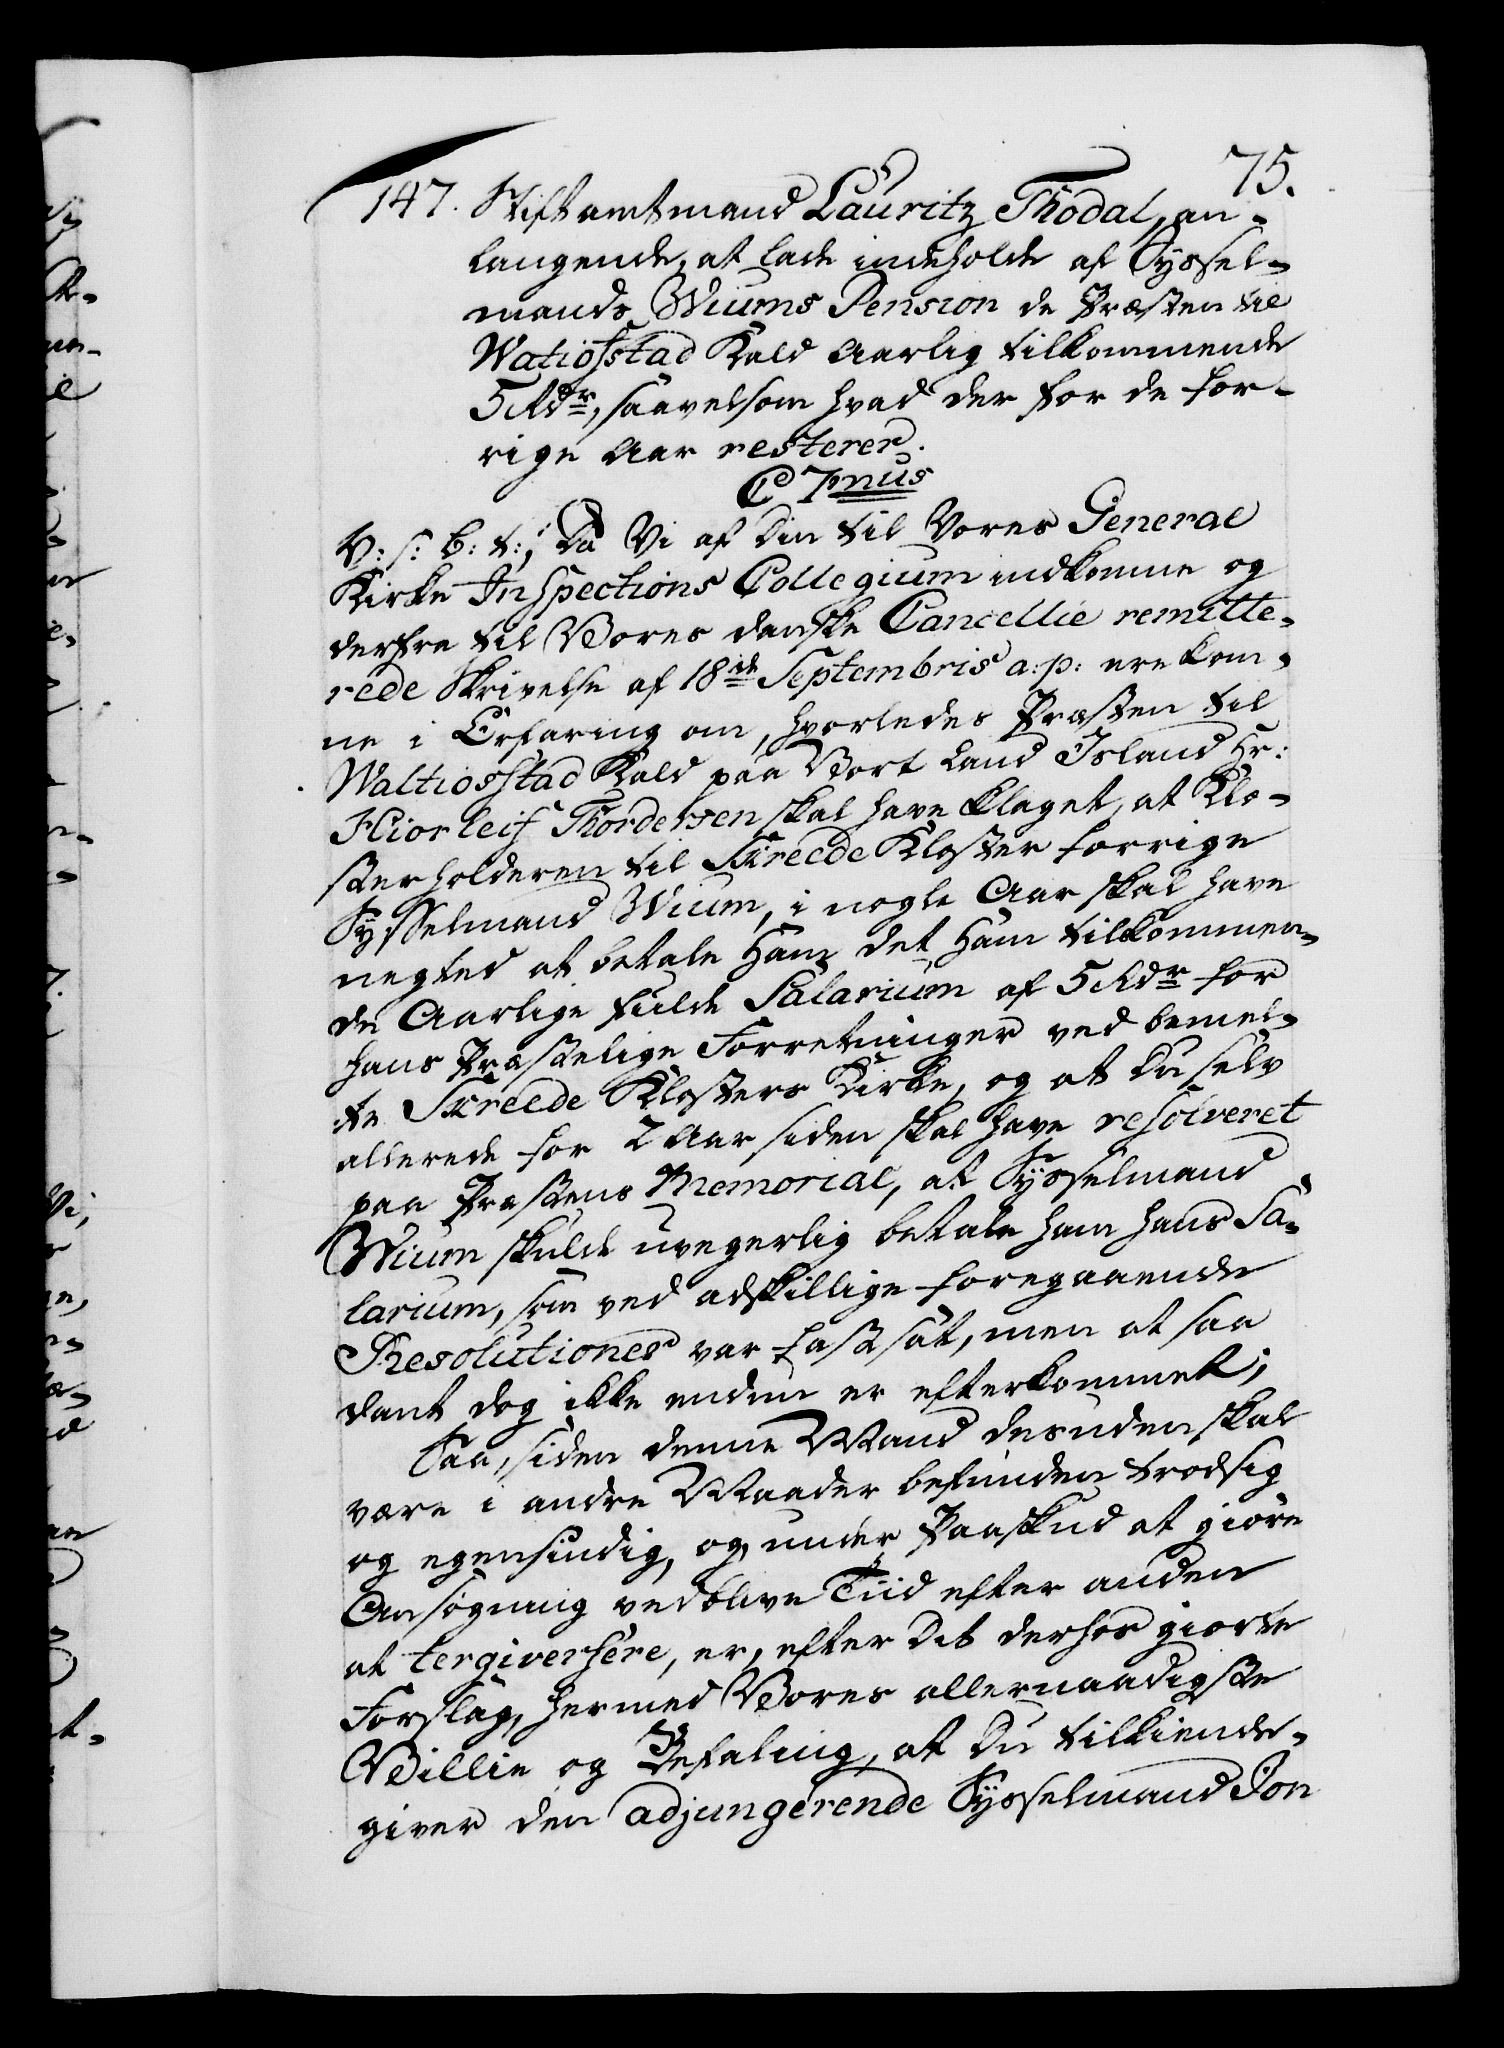 75.
147. Stiftamtmand Lauritz Thodal, an-
langende, at lade indeholde af Syssel-
mands Wiums Pension de Præsten til
Watiosstad Kald Aarlig tilkommende
5 Rdr, saavelsom hvad der for de for-
rige Aar resterer.
C 7mus
V: s: b: t:, Da Vi af Din til Vores General
Kirke Inspections Collegium indkomne og
derfra til Vores danske Cancellie remitte-
rede Skrivelse af 18de Septembris a: p: ere kom-
ne i Erfaring om, hvorledes Præsten til
Waltiosstad Kald paa Vort Land Island Hr:
Hiorleif Thordersen skal have klaget, at Klo-
sterholderen til Skreede Kloster forrige
Sysselmand Wium, i nogle Aar skal have
negted at betale Ham det Ham tilkommen-
de Aarlige fulde Salarium af 5 Rdr for
hans Præstelige Forretninger ved bemel-
te Skreede Klosters Kirke, og at Du selv
allerede for 2 Aar siden skal have resolveret
paa Præstens Memorial, at Sysselmand
Wium skulde uvegerlig betale ham hans Sa-
larium, som ved adskillige foregaaende
Resolutioner var fastsat, men at saa
dant dog ikke endnu er efterkommet;
Saa, siden denne Mand desuden skal
være i andre Maader befunden trodsig
og egensindig, og, under Paaskud at giøre
Ansøgning vedblive Tiid efter anden
at tergiversere, er, efter Dit derhos giorte
Forslag, hermed Vores allernaadigste
Villie og Befaling, at Du tilkiende-
giver den adjungerende Sysselmand Jon